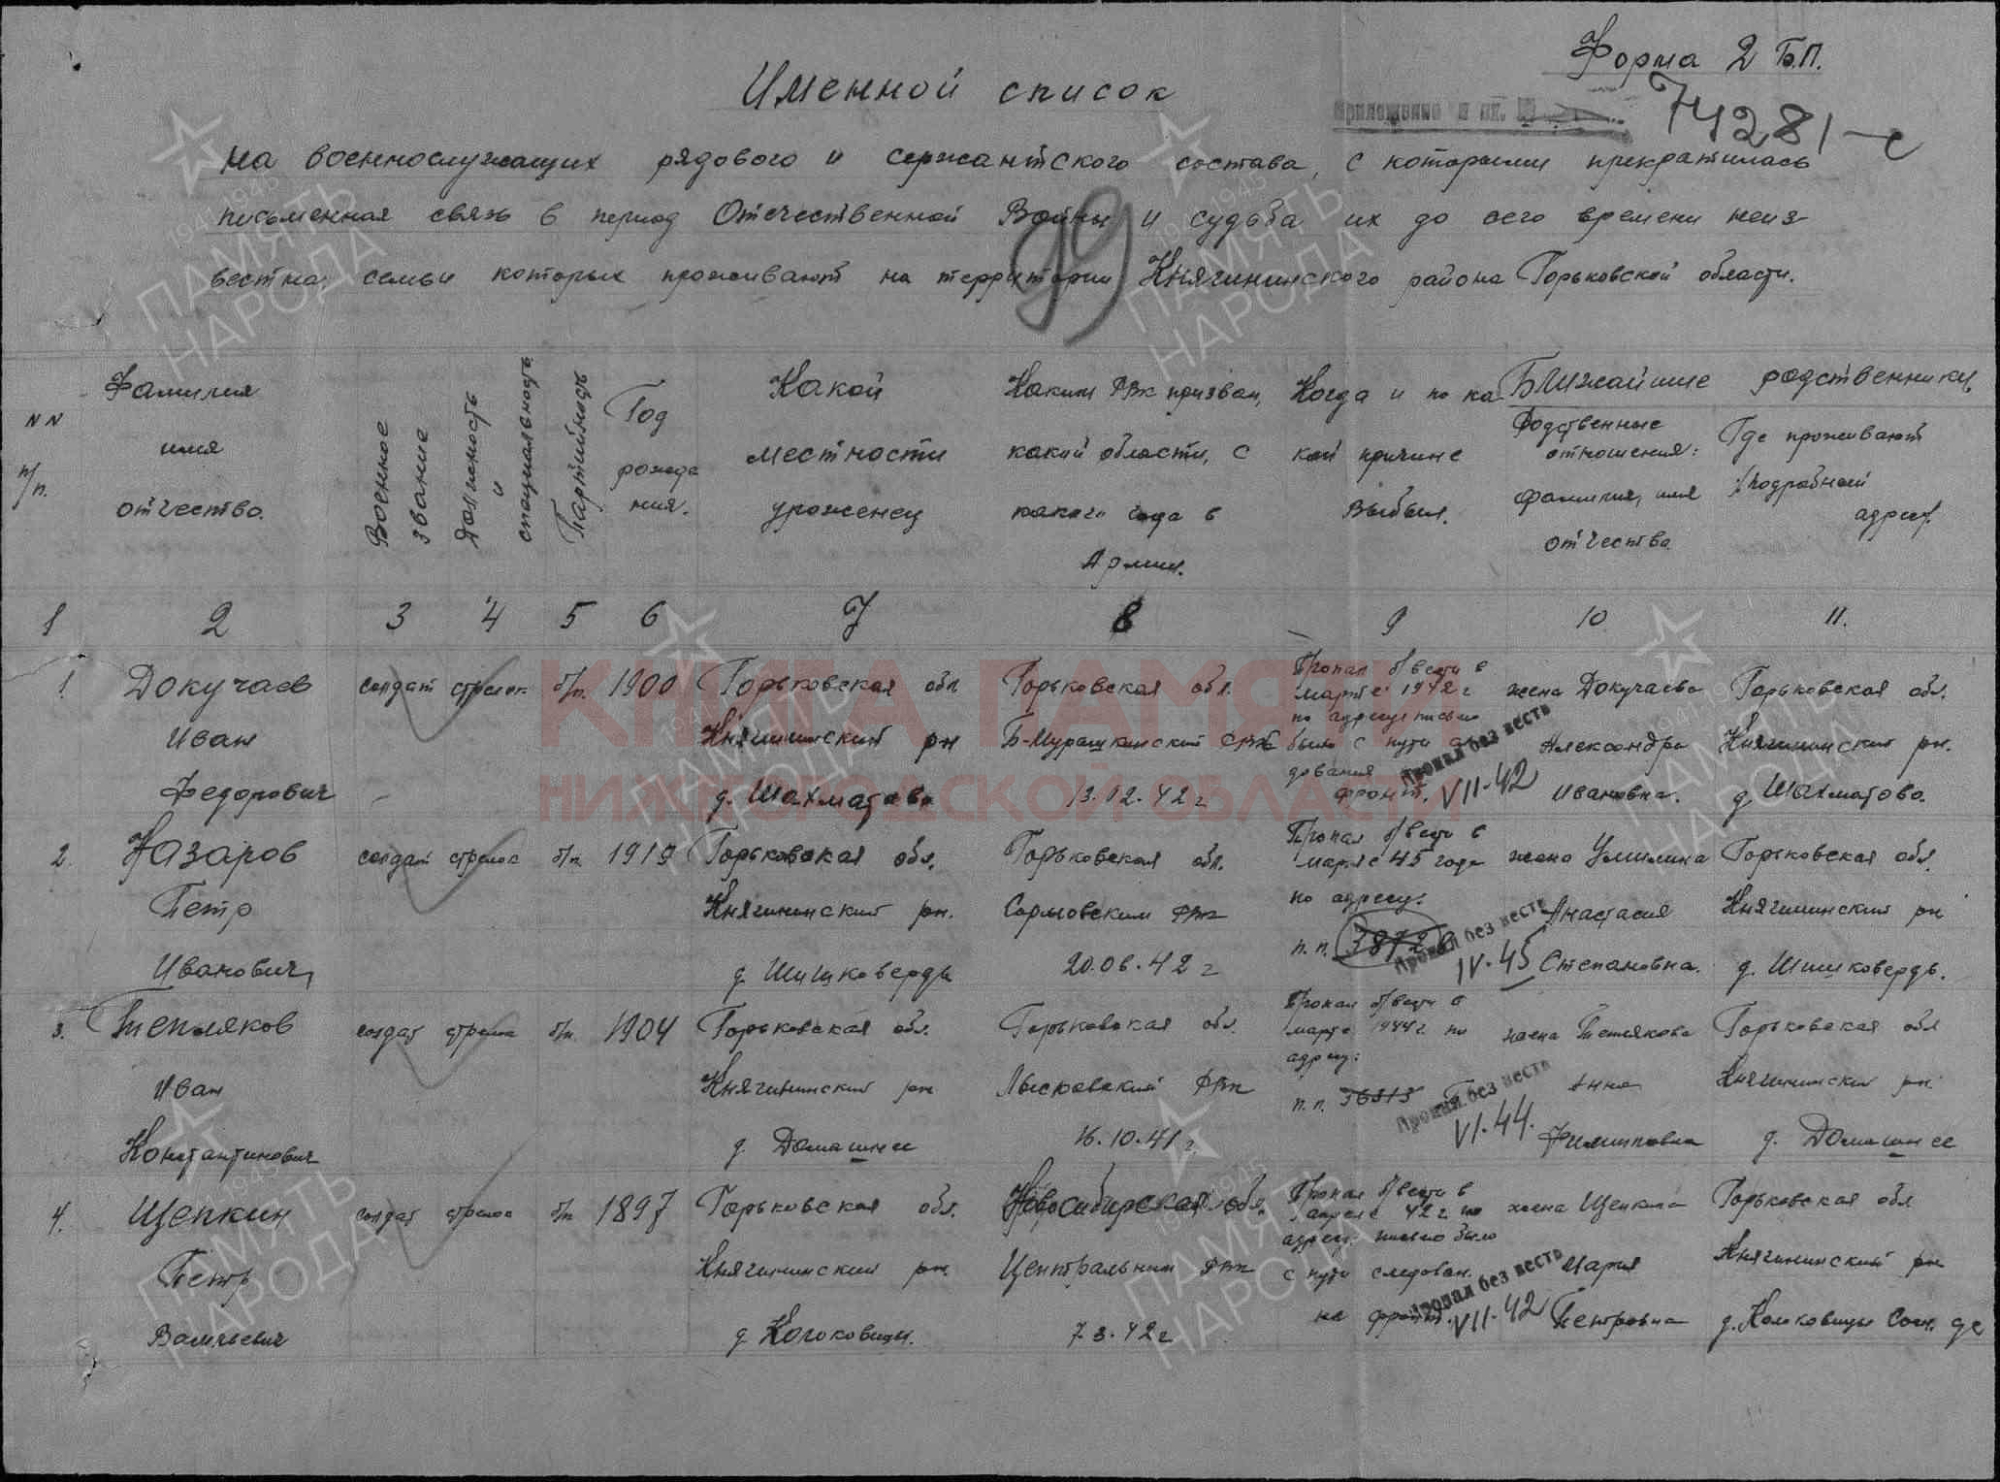 Форма 2 Б.П.
Именной список
приложение к вх. №
74281-с
на военнослужащих рядового и сержантского состава, с которыми прекратилась
письменная связь в период Отечественной Войны и судьба их до сего времени неиз-
вестна, семьи которых проживают на территории Княгининского района Горьковской области.
99
NN п/п.
Фамилия имя отчество.
Военное звание
Должность и специальность
Партийность
Год рождения.
Какой местности уроженец
Каким РВК призван, какой области, с какого года в Армии.
Когда и по какой причине выбыл.
Ближайшие родственники.
Родственные отношения: фамилия, имя отчество.
Где проживают /подробный адрес/.
1 2 3 4 5 6 7 8 9 10 11.
1. Докучаев солдат стрелок б/п. 1900 Горьковская обл Горьковская обл. Пропал б/вести в марте 1942 г жена Докучаева Горьковская обл.
Иван Княгининский рн Б-Мурашкинский РВК по адресу письмо было с пути Александра Княгининский рн.
Федорович д. Шахматово 13.12.42 г фронт. Ивановна. д. Шахматово.
Пропал без вести
VII-42
2. Назаров солдат стрелок б/п. 1919 Горьковская обл. Горьковская обл. Пропал б/вести в марте 45 года жена Горьковская обл.
Петр Княгининский рн. Сормовским РВК по адресу: Анастасия Княгининский рн
Иванович д. 20.06.42 г п.п. Степановна. д.
Пропал без вести
IV-45
3. Тепляков солдат стрелок б/п. 1904 Горьковская обл. Горьковская обл. Пропал б/вести в марте 1944 г. по адресу: жена Теплякова Горьковская обл
Иван Княгининский рн Лысковский РВК п.п. 36313 Анна Княгининский рн.
Константинович д. Домашнее 16.10.41 г. Филипповна д. Домашнее
Пропал без вести
VI-44.
4. Щепкин солдат стрелок б/п 1897 Горьковская обл. Новосибирская обл. Пропал б/вести в апреле 42 г. по жена Щепкина Горьковская обл
Петр Княгининский рн. Центральным РВК адресу: письмо было с пути следован. Мария Княгининский рн
Васильевич д. 7.3.42 г на фронт. Петровна д.
Пропал без вести
VII-42
КНИГА ПАМЯТИ
НИЖЕГОРОДСКОЙ ОБЛАСТИ
1941-1945
ПАМЯТЬ
НАРОДА